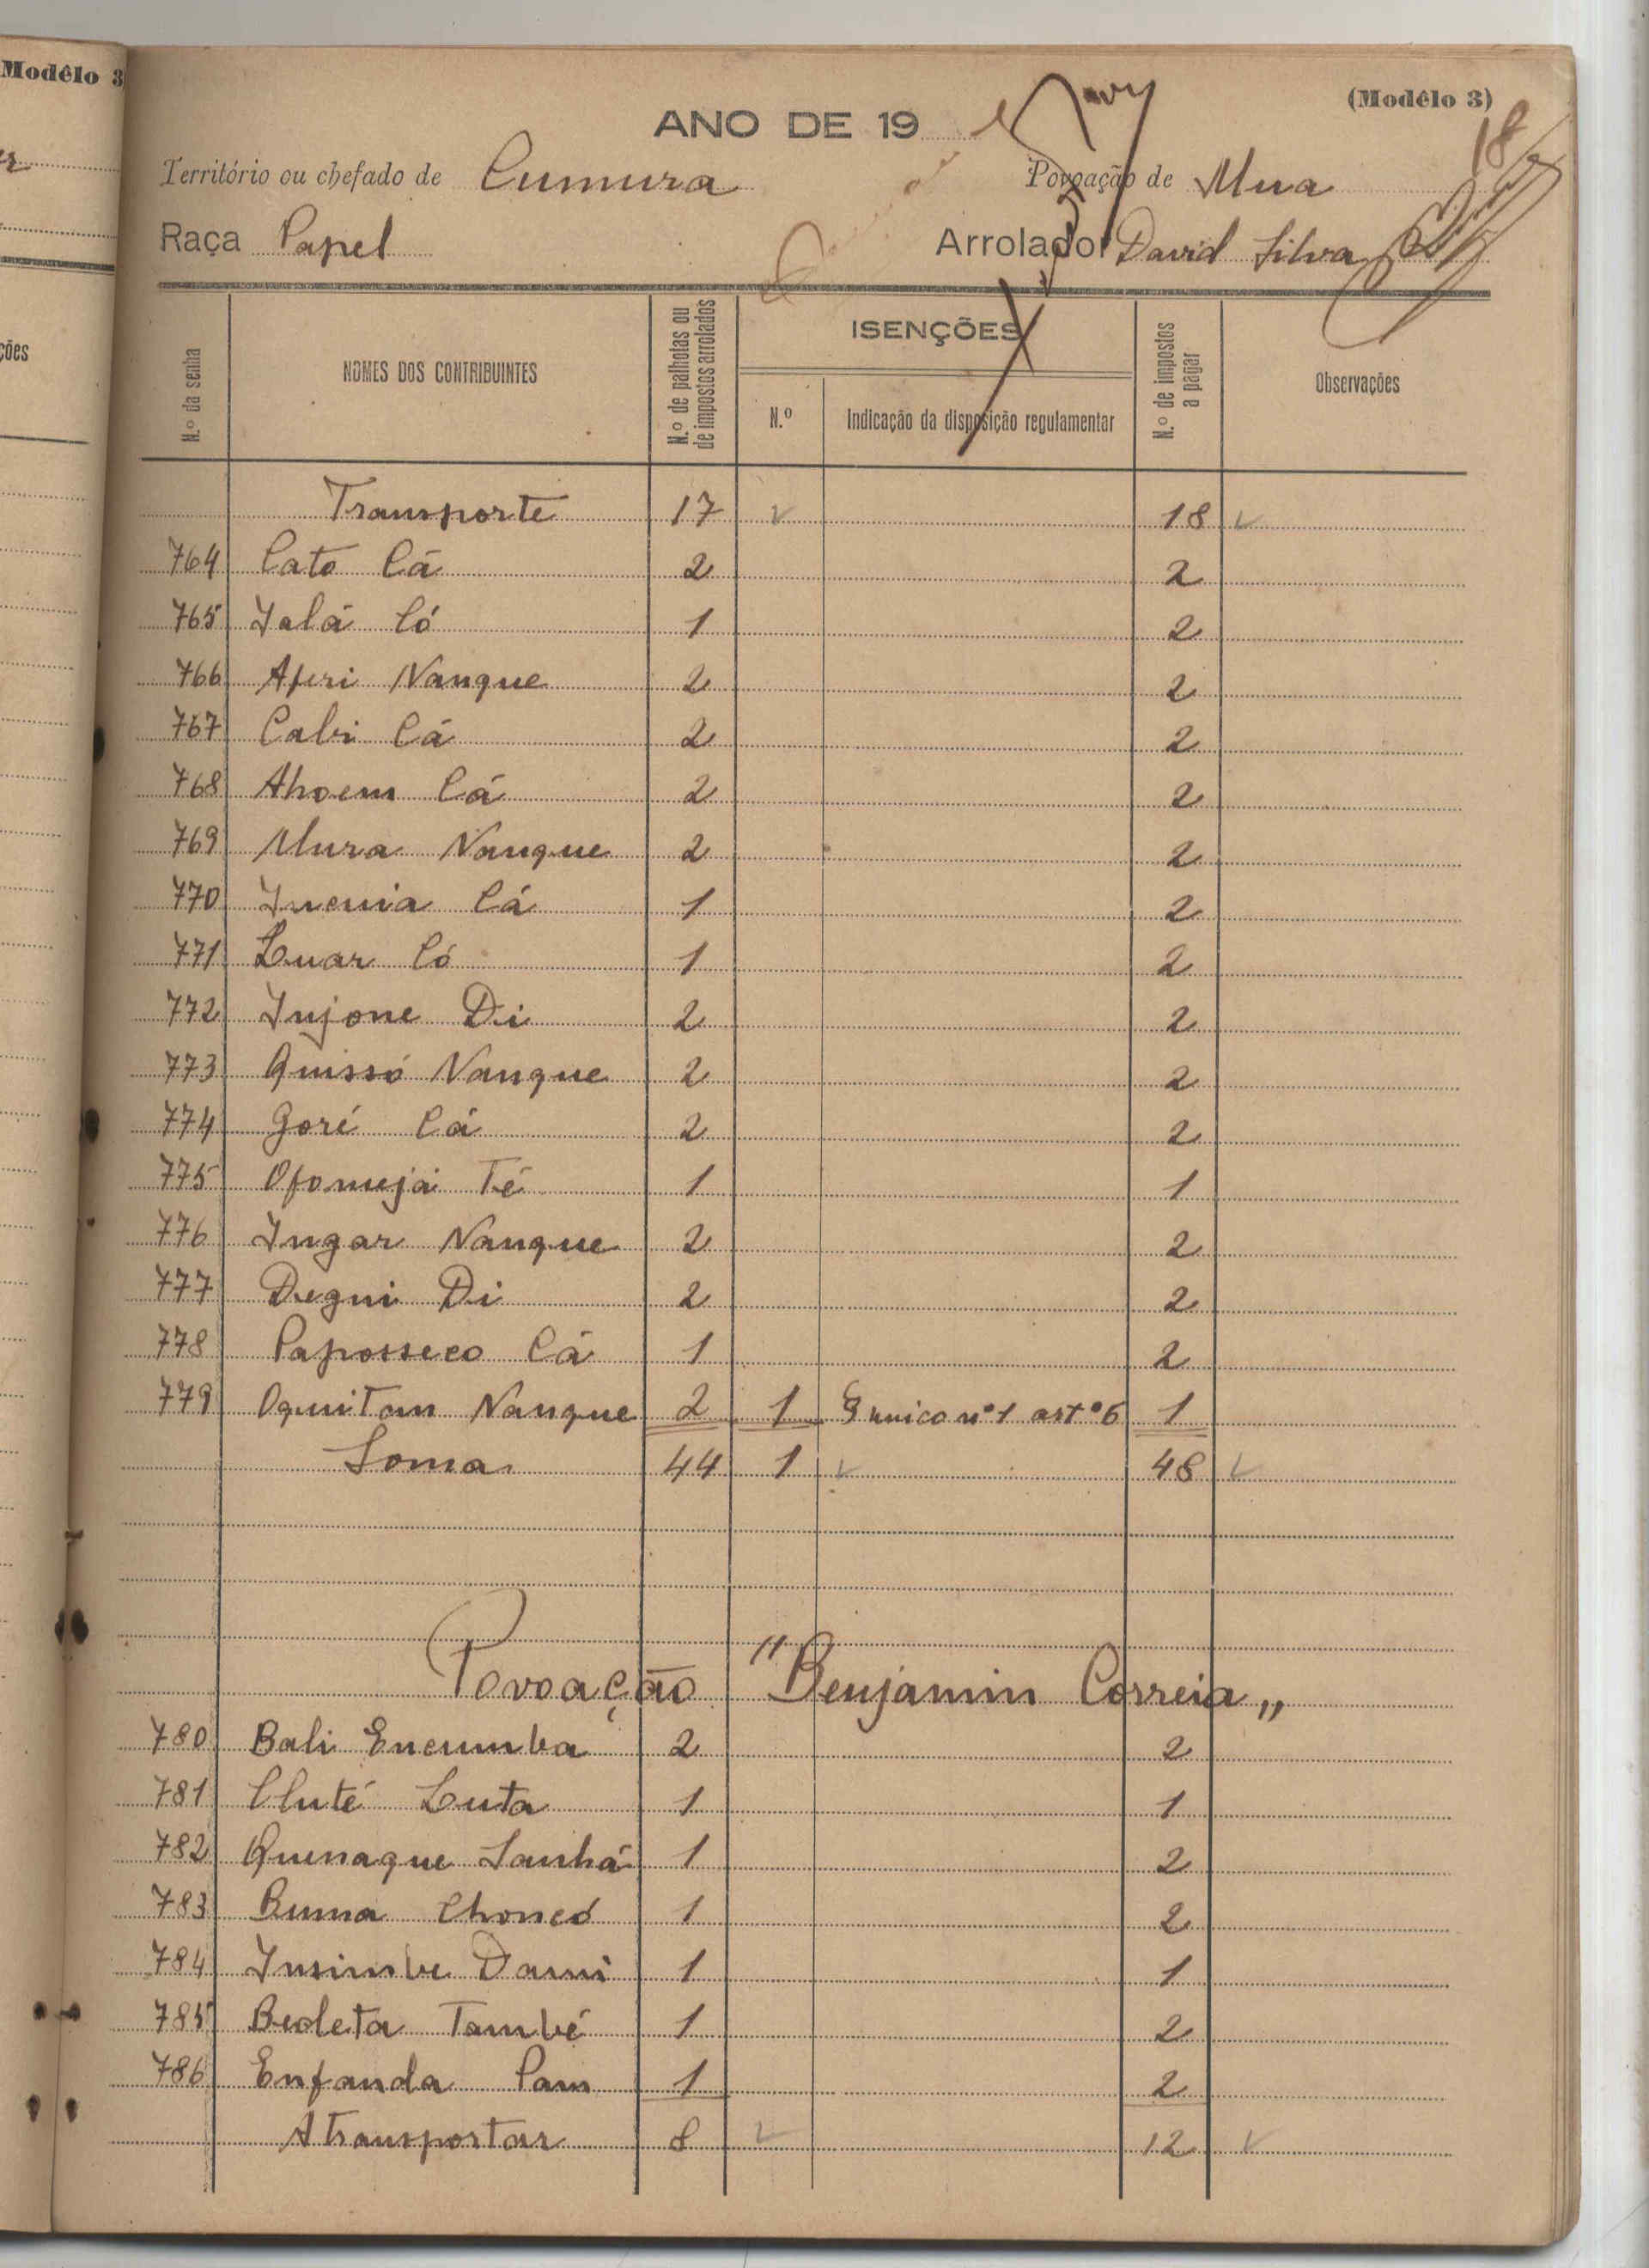 Modêlo 3
ções
(Modêlo 3)
ANO DE 19
18
Território ou chefado de Cumura Povoação de Mua
Raça Papel Arrolador David Silva
N.º da senha NOMES DOS CONTRIBUINTES N.º de palhotas ou de impostos arrolados ISENÇÕES N.º Indicação da disposição regulamentar N.º de impostos a pagar Observações
Transporte 17 18
764 Cato Cá 2 2
765 Jalá Có 1 2
766 Aperi Nanque 2 2
767 Cabi Cá 2 2
768 Ahoem Cá 2 2
769 Mura Nanque 2 2
770 Cá 1 2
771 Luar Có 1 2
772 Injone Di 2 2
773 Quissó Nanque 2 2
774 Goré Cá 2 2
775 Té 1 1
776 Ingar Nanque 2 2
777 Degui Di 2 2
778 Paposseco Cá 1 2
779 Oquitam Nanque 2 1 § unico nº 1 artº 6 1
Soma 44 1 48
Povoação "Benjamin Correia„
780 Bali Encumba 2 2
781 Cluté Luta 1 1
782 Quenaque Sanhá 1 2
783 Buma Choncó 1 2
784 Insimbe Dami 1 1
785 Beoleta També 1 2
786 Enfanda Pam 1 2
A transportar 8 12